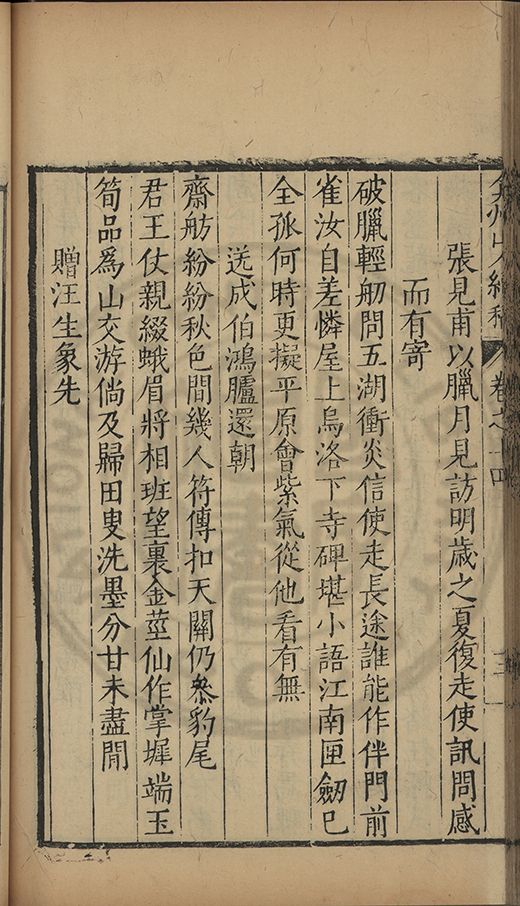 弇州山人續稿 卷之十四 三
張見甫以臘月見訪明歲之夏復走使訊問感
而有寄
破臘輕舠問五湖衝炎信使走長途誰能作伴門前
雀汝自差憐屋上烏洛下寺碑堪小語江南匣劒已
全孤何時更擬平原會紫氣從他看有無
送成伯鴻臚還朝
齋舫紛紛秋色間幾人符傳扣天關仍叅豹尾
君王仗親綴蛾眉將相班望裏金莖仙作掌墀端玉
筍品爲山交游倘及歸田叟洗墨分甘未盡閒
贈汪生象先